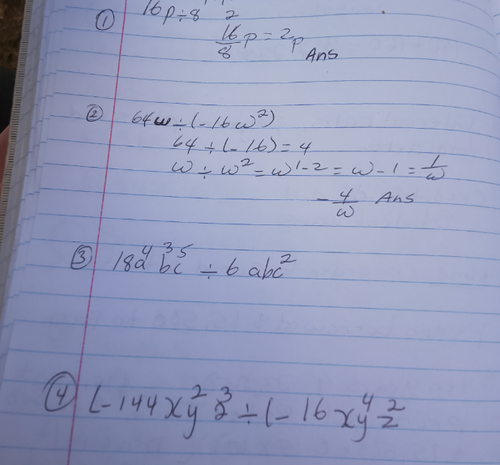 ① 16p÷8
16/8 p = 2p
Ans
② 64w ÷ (-16w²)
64 ÷ (-16) = 4
w ÷ w² = w¹⁻² = w - 1 = 1/w
- 4/w Ans
③ 18a⁴b³c⁵ ÷ 6abc²
④ (-144xy²z³ ÷ (-16xy⁴z²